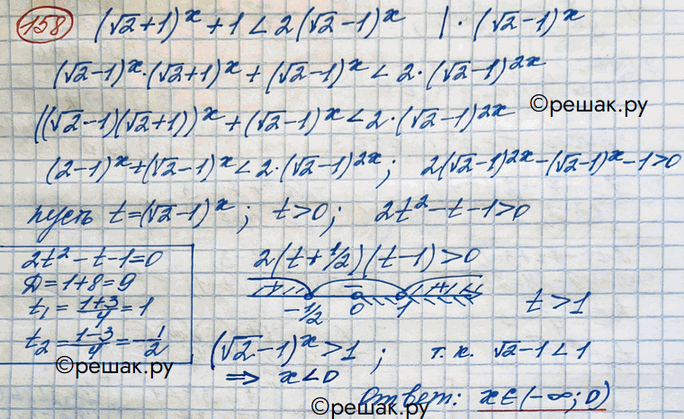 158 (√2+1)^x + 1 < 2(√2-1)^x | · (√2-1)^x
(√2-1)^x · (√2+1)^x + (√2-1)^x < 2 · (√2-1)^2x
©решак.ру
((√2-1)(√2+1))^x + (√2-1)^x < 2 · (√2-1)^2x
(2-1)^x + (√2-1)^x < 2 · (√2-1)^2x ; 2(√2-1)^2x - (√2-1)^x - 1 > 0
пусть t = (√2-1)^x ; t > 0 ; 2t² - t - 1 > 0
2t² - t - 1 = 0
D = 1 + 8 = 9
t₁ = (1+3)/4 = 1
t₂ = (1-3)/4 = -1/2
©решак.ру
2(t + 1/2)(t - 1) > 0
+ - +
-1/2 0 1
t > 1
(√2-1)^x > 1 ; т.к. √2-1 < 1
⇒ x < 0
Ответ: x ∈ (-∞; 0)
©решак.ру